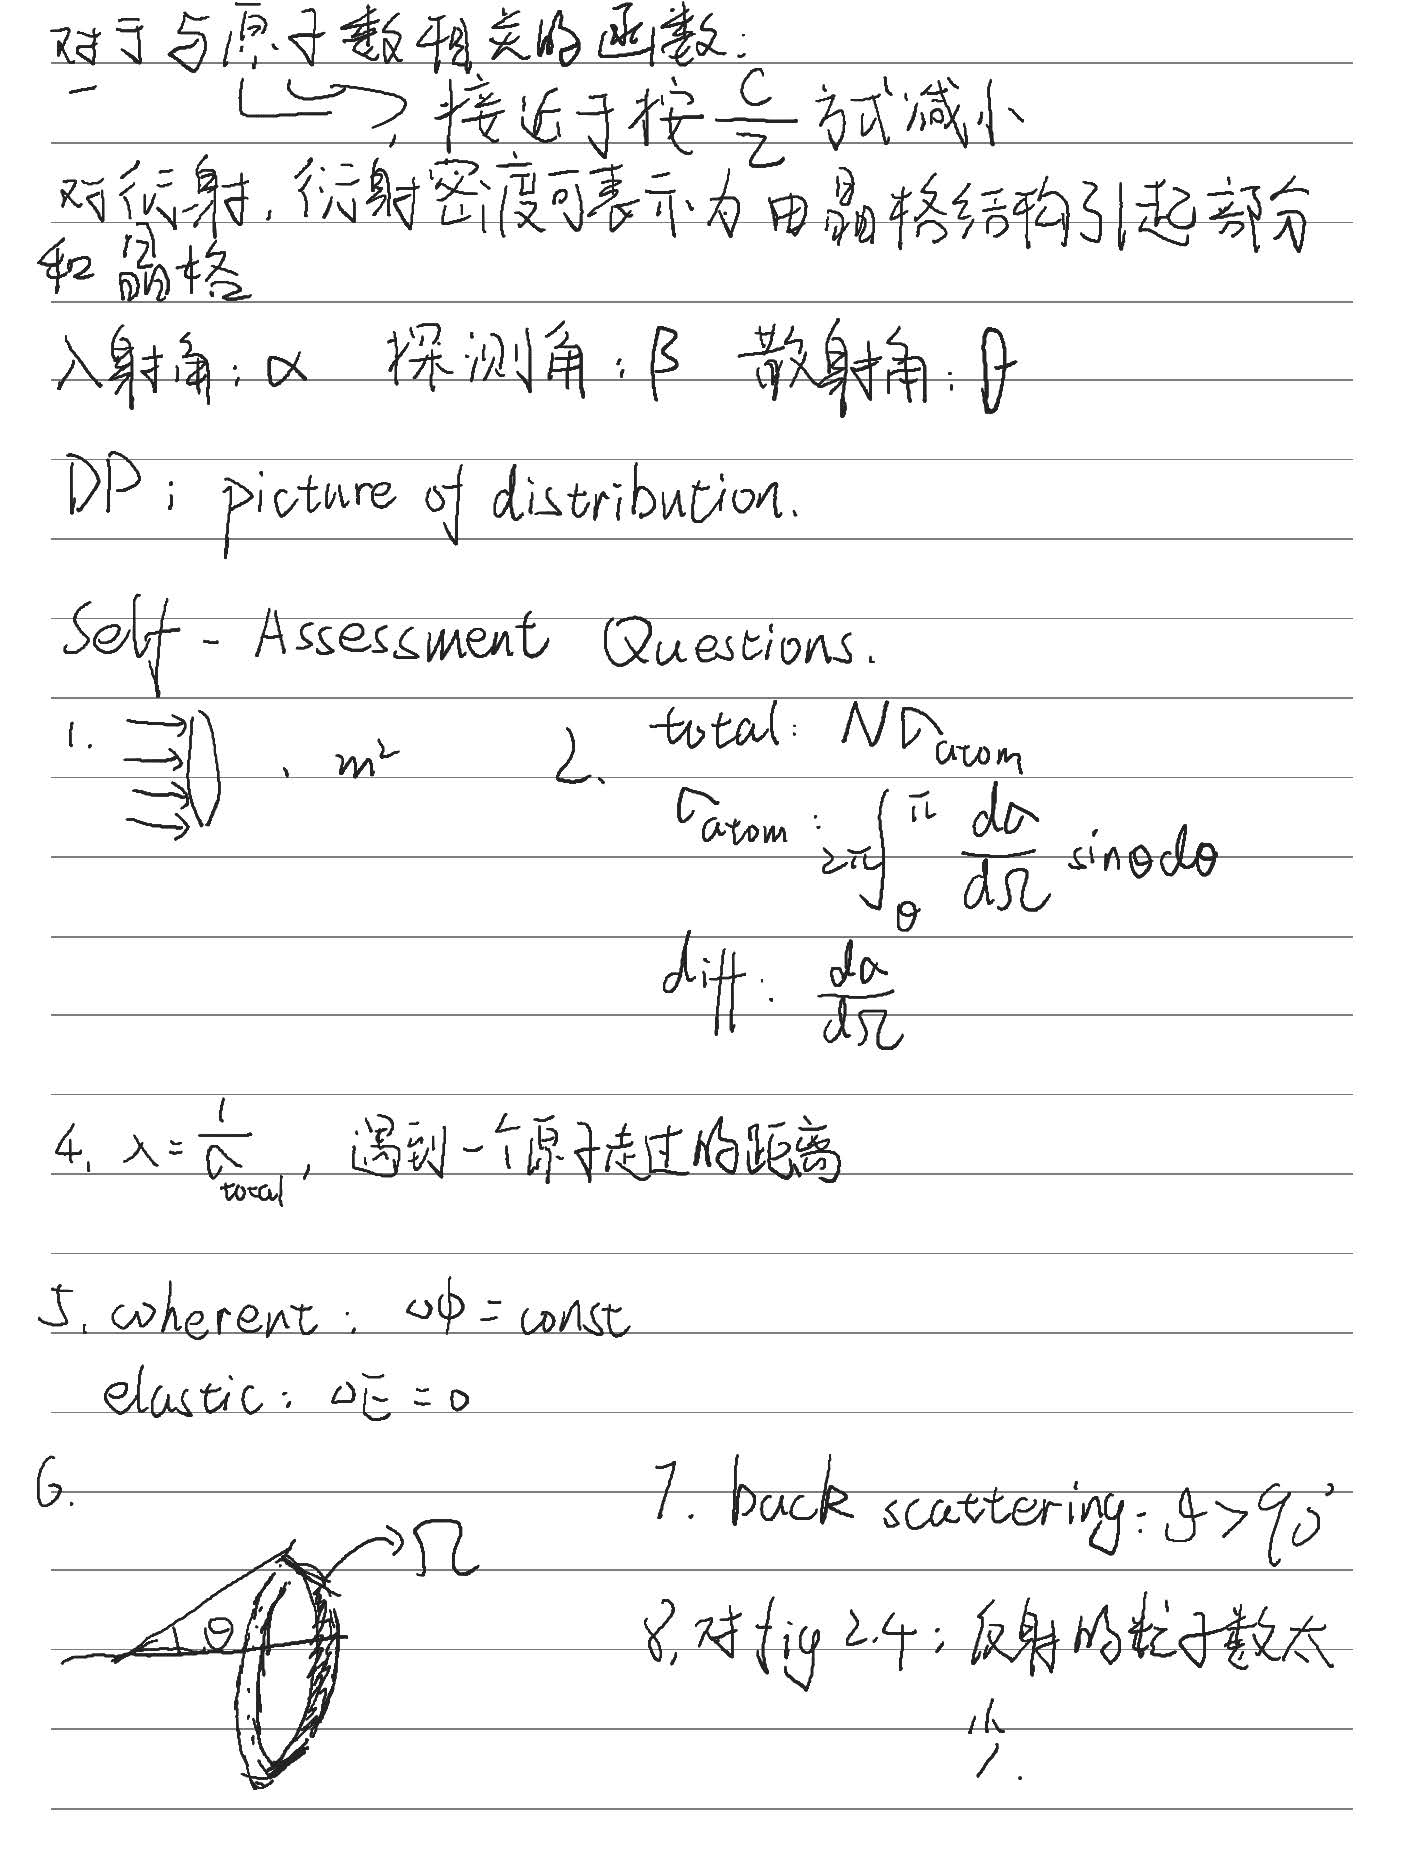 对于与原子数相关的函数:
接近于按 C/Z 方式减小
对衍射, 衍射密度可表示为由晶格结构引起部分
和晶格
入射角: α 探测角: β 散射角: θ
DP: picture of distribution.
Self-Assessment Questions.
1. , m²
2. total: Nσatom
σatom: 2π∫θ^π dσ/dΩ sinθdθ
diff: dσ/dΩ
4. λ = 1/σtotal, 遇到一个原子走过的距离
5. coherent: Δφ = const
elastic: ΔE = 0
6.
θ Ω
7. back scattering: θ > 90°
8. 对 fig 2.4: 反射的粒子数太
少.